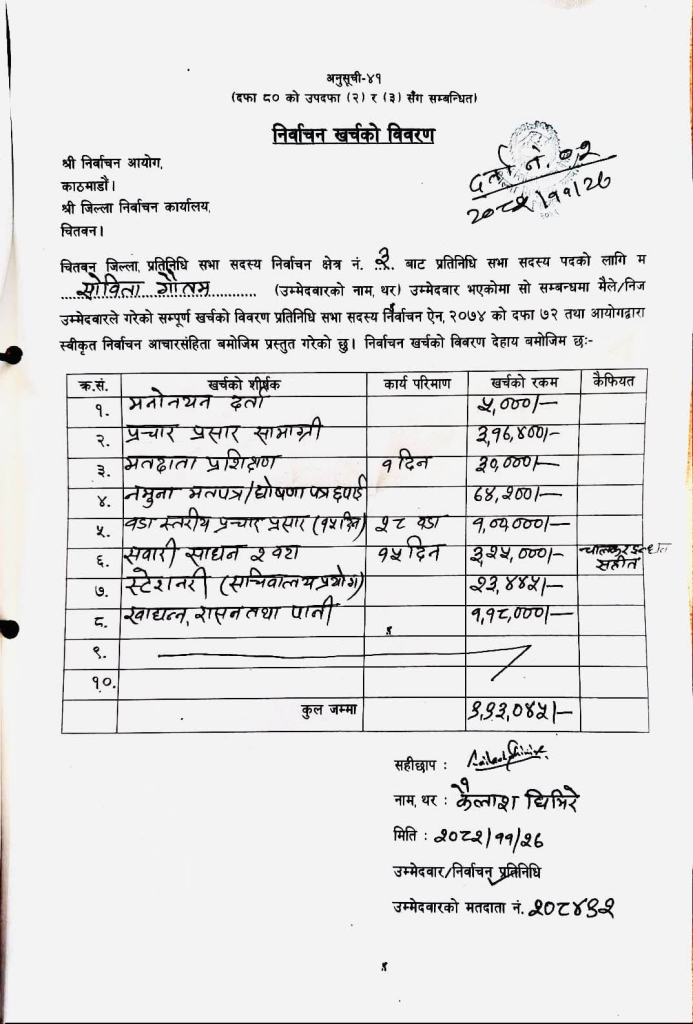 अनुसूची-४१
(दफा ८० को उपदफा (२) र (३) सँग सम्बन्धित)
निर्वाचन खर्चको विवरण
श्री निर्वाचन आयोग,
काठमाडौं।
श्री जिल्ला निर्वाचन कार्यालय,
चितवन।
दर्ता नं. ०२
२०८२/११/२६
चितवन जिल्ला, प्रतिनिधि सभा सदस्य निर्वाचन क्षेत्र नं. ३ बाट प्रतिनिधि सभा सदस्य पदको लागि म
सोविता गौतम (उम्मेदवारको नाम, थर) उम्मेदवार भएकोमा सो सम्बन्धमा मैले/निज
उम्मेदवारले गरेको सम्पूर्ण खर्चको विवरण प्रतिनिधि सभा सदस्य निर्वाचन ऐन, २०७४ को दफा ७२ तथा आयोगद्वारा
स्वीकृत निर्वाचन आचारसंहिता बमोजिम प्रस्तुत गरेको छु। निर्वाचन खर्चको विवरण देहाय बमोजिम छः-
क्र.सं. खर्चको शीर्षक कार्य परिमाण खर्चको रकम कैफियत
१. मनोनयन दर्ता ५,०००/-
२. प्रचार प्रसार सामाग्री ३,१६,४००/-
३. मतदाता प्रशिक्षण १ दिन ३०,०००/-
४. नमुना मतपत्र/घोषणा पत्र छपाई ६४,२००/-
५. वडा स्तरीय प्रचार प्रसार (१५ दिन) २८ वडा
६. सवारी साधन २ वटा १५ दिन ३,२५,०००/- सहीत
७. स्टेशनरी (सचिवालय प्रयोग) २३,४४५/-
८. खाद्यन्न, रासन तथा पानी १,१८,०००/-
९.
१०.
कुल जम्मा
सहीछाप :
नाम, थर : कैलाश घिमिरे
मिति : २०८२/११/२६
उम्मेदवार/निर्वाचन प्रतिनिधि
उम्मेदवारको मतदाता नं.